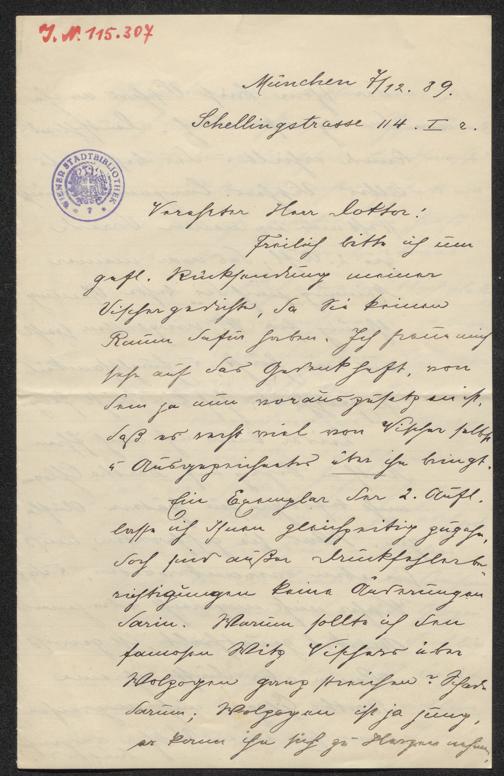 J. N. 115.307
München 7/12. 89.
Schellingstrasse 114. I r.
WIENER STADTBIBLIOTHEK
* 7 *
Verehrter Herr Doktor!
Freilich bitte ich um
gefl. Rücksendung meiner
Vischergedichte, da Sie keinen
Raum dafür haben. Ich freue mich
sehr auf das Gedenkheft, von
dem ja nun vorauszusetzen ist,
daß es recht viel von Vischer selbst
u Ausgezeichnetes über ihn bringt.
Ein Exemplar der 2. Aufl.
lasse ich Ihnen gleichzeitig zugehn,
doch sind außer Druckfehlerbe
richtigungen keine Änderungen
darin. Warum sollte ich den
famosen Witz Vischers über
Wolzogen ganz streichen? Schade
darum; Wolzogen ist ja jung,
er kann ihn sich zu Herzen nehmen,